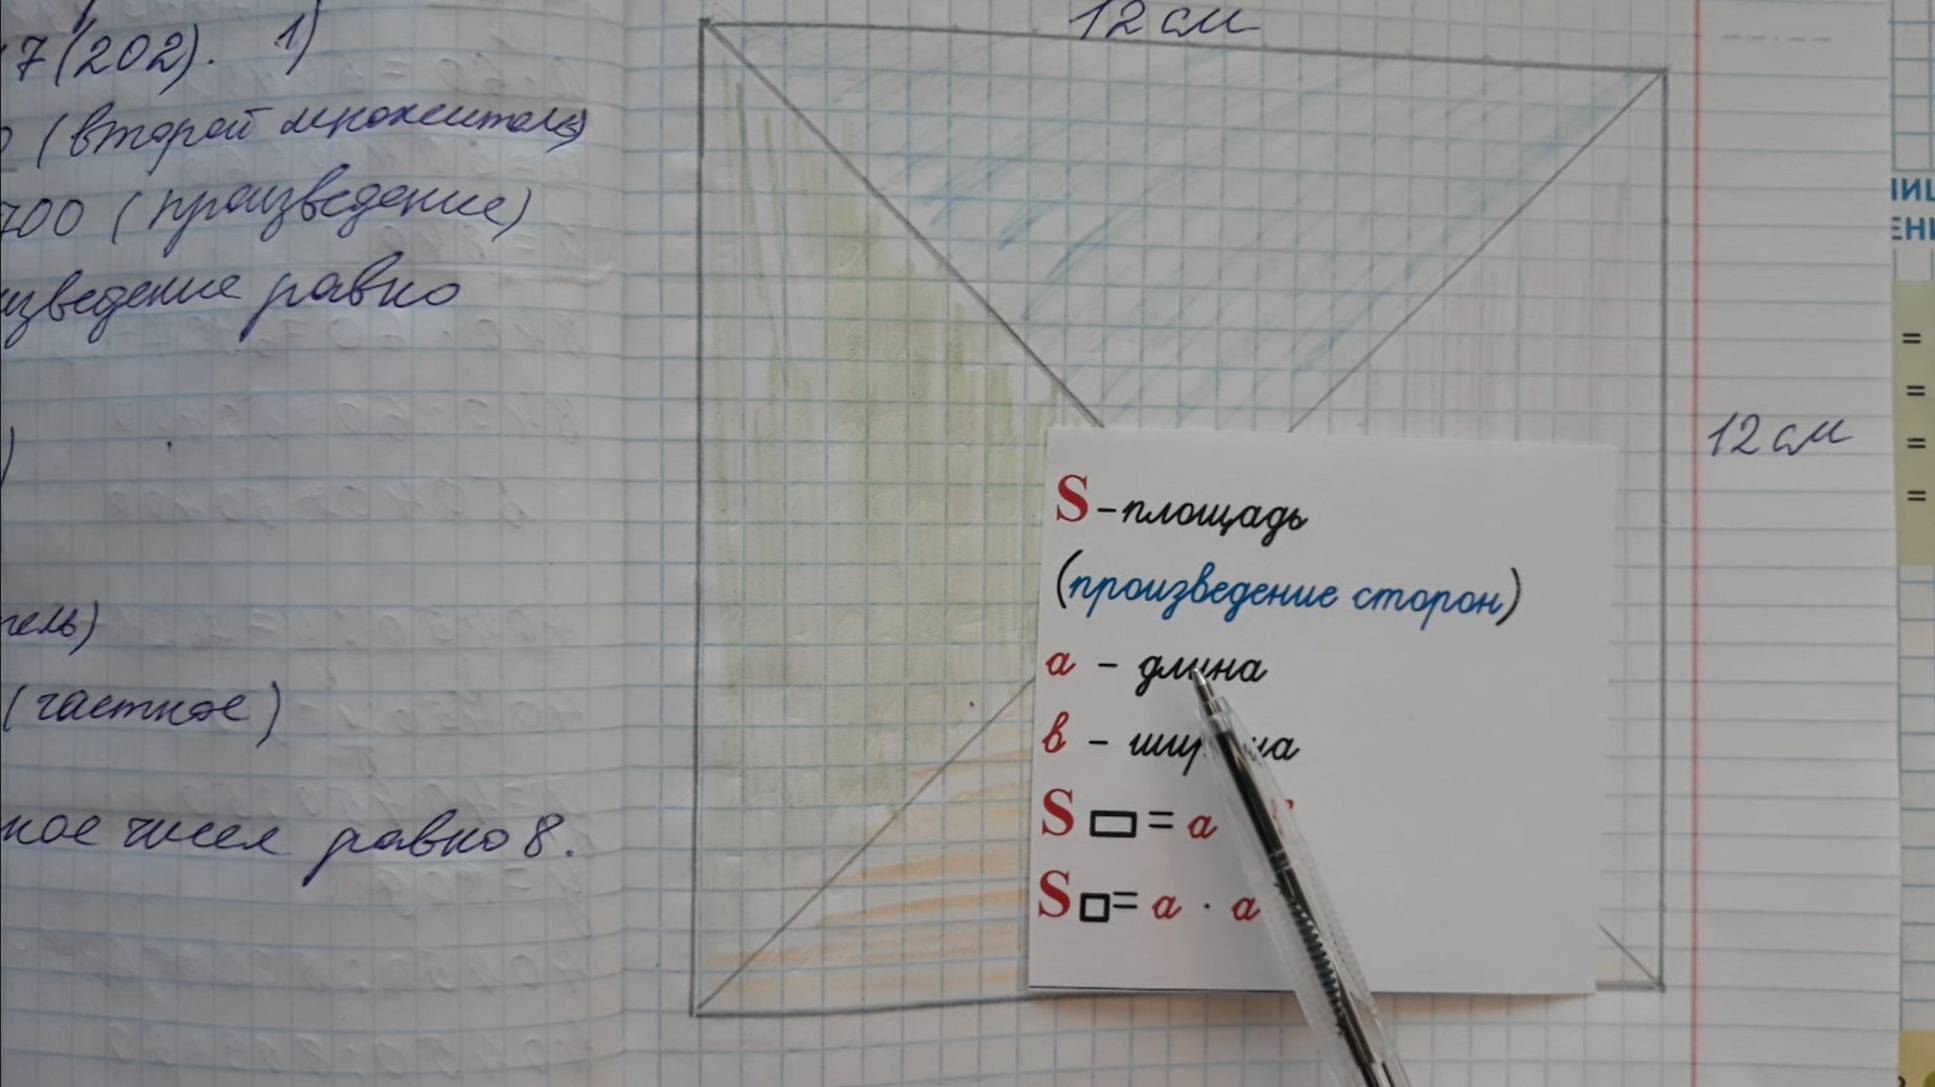 7(202). 1)
(второй множитель)
700 (произведение)
изведение равно
)
тель)
(частное)
ное чисел равно 8.
12 см
12 см
S – площадь
(произведение сторон)
а – длина
в –
S ▭ = а
S □ = а · а
=
=
=
=